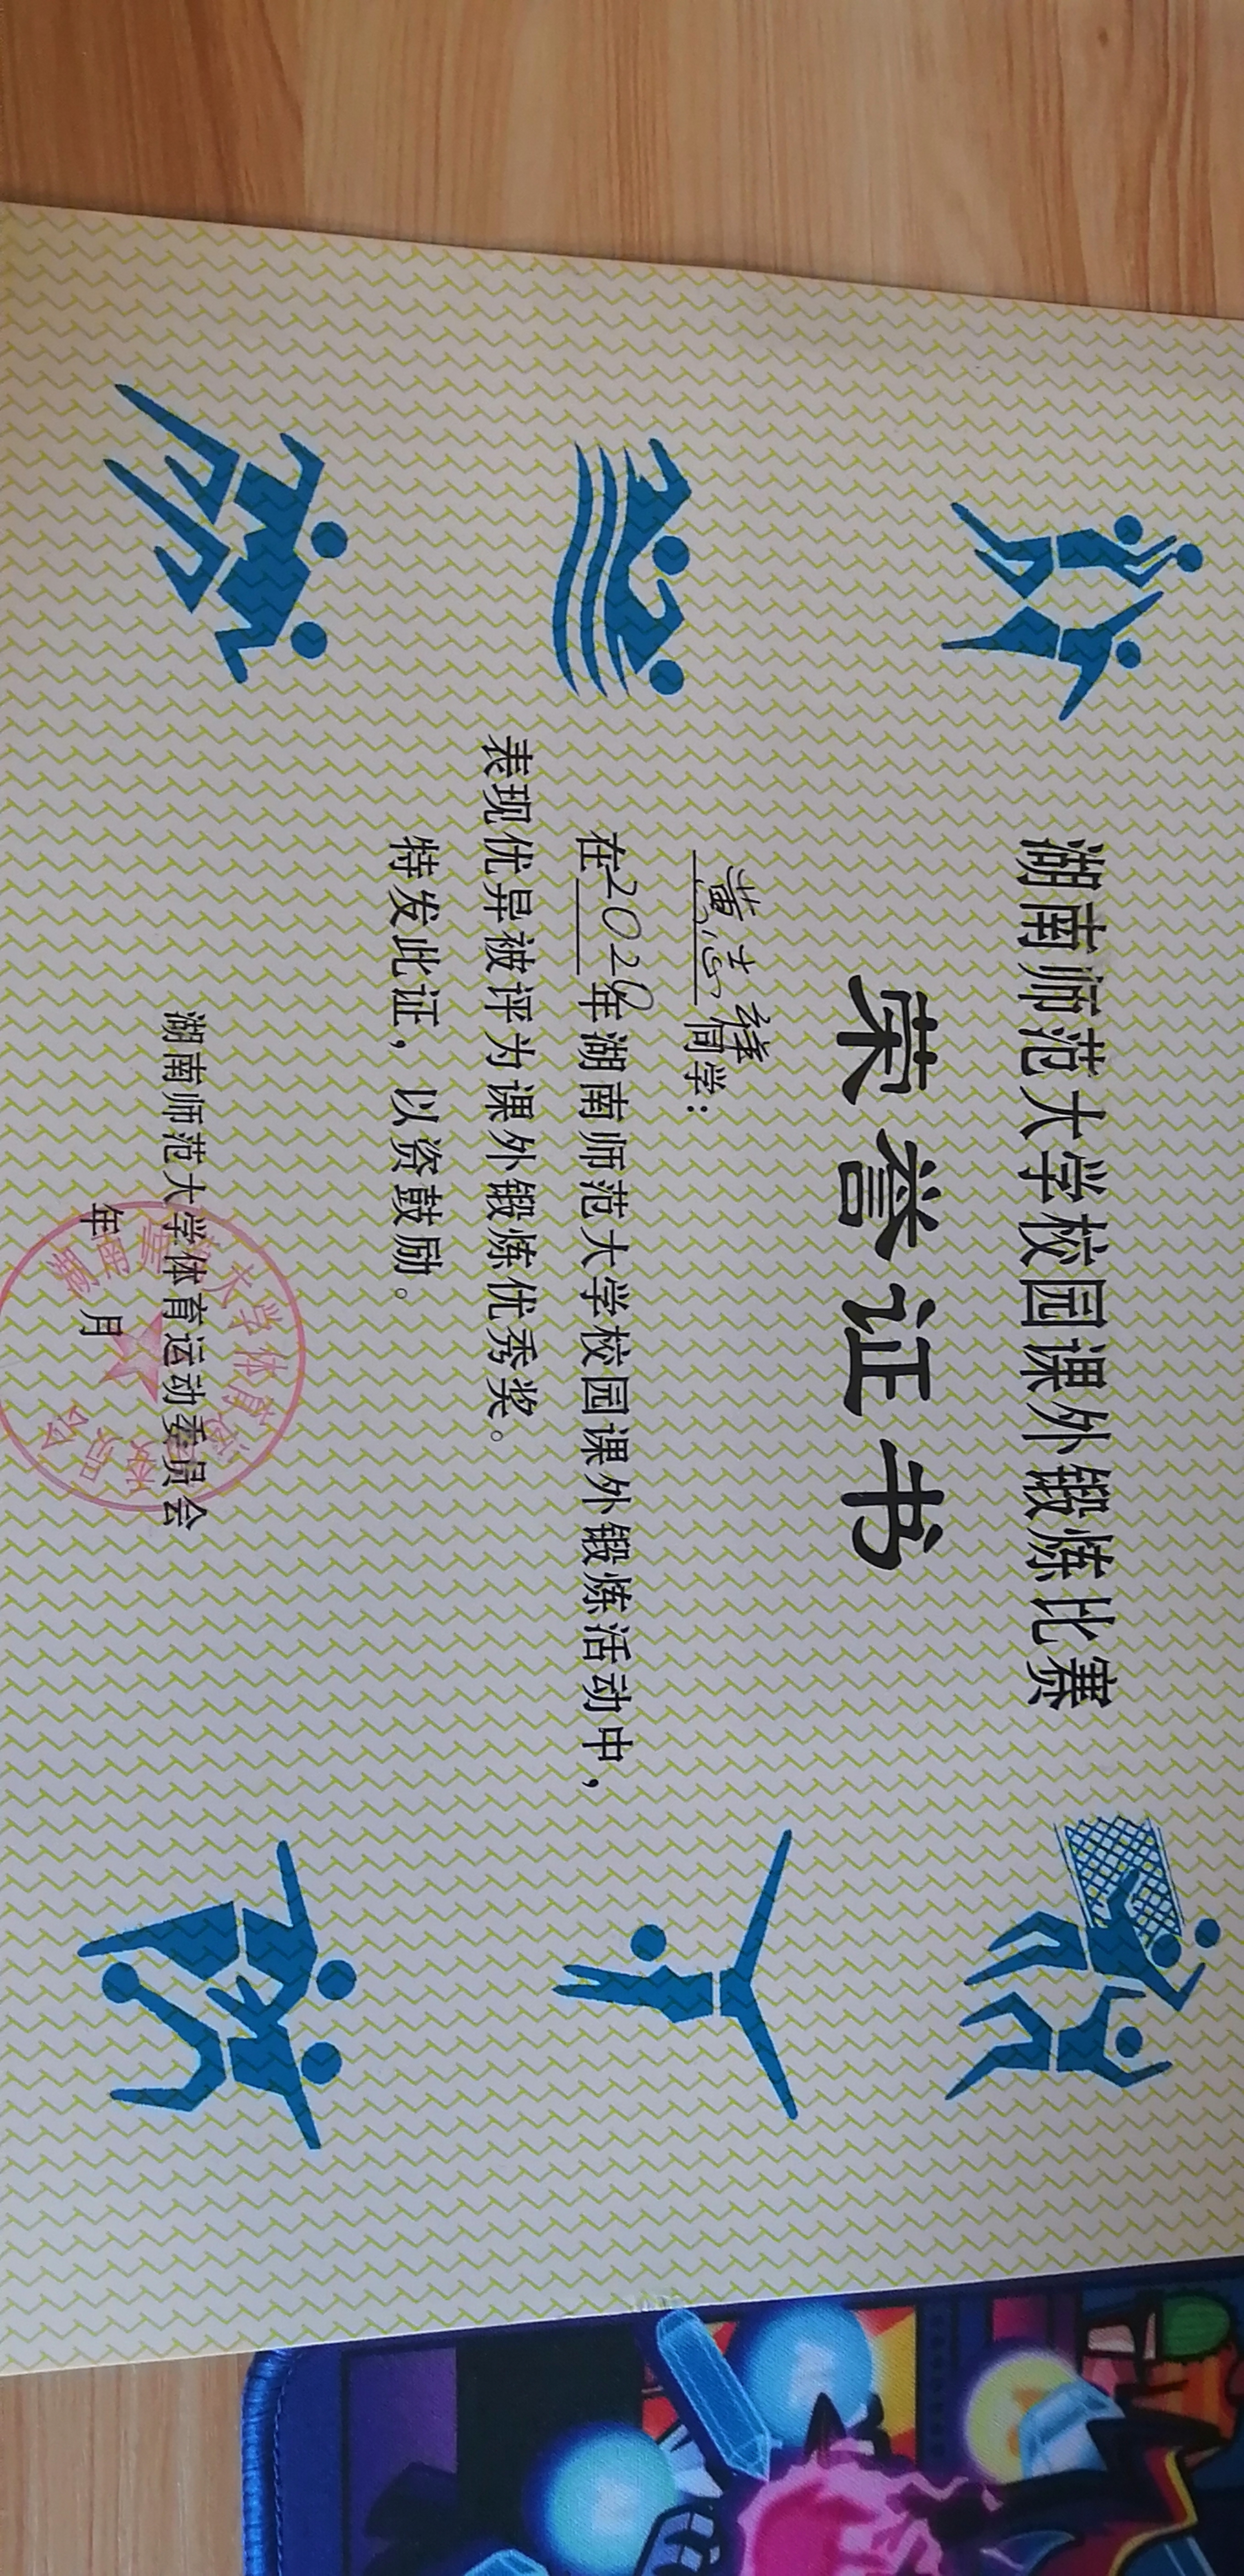 湖南师范大学校园课外锻炼比赛
荣誉证书
黄志祥同学：
在2020年湖南师范大学校园课外锻炼活动中，
表现优异被评为课外锻炼优秀奖。
特发此证，以资鼓励。
湖南师范大学体育运动委员会
年 月
湖南师范大学体育运动委员会